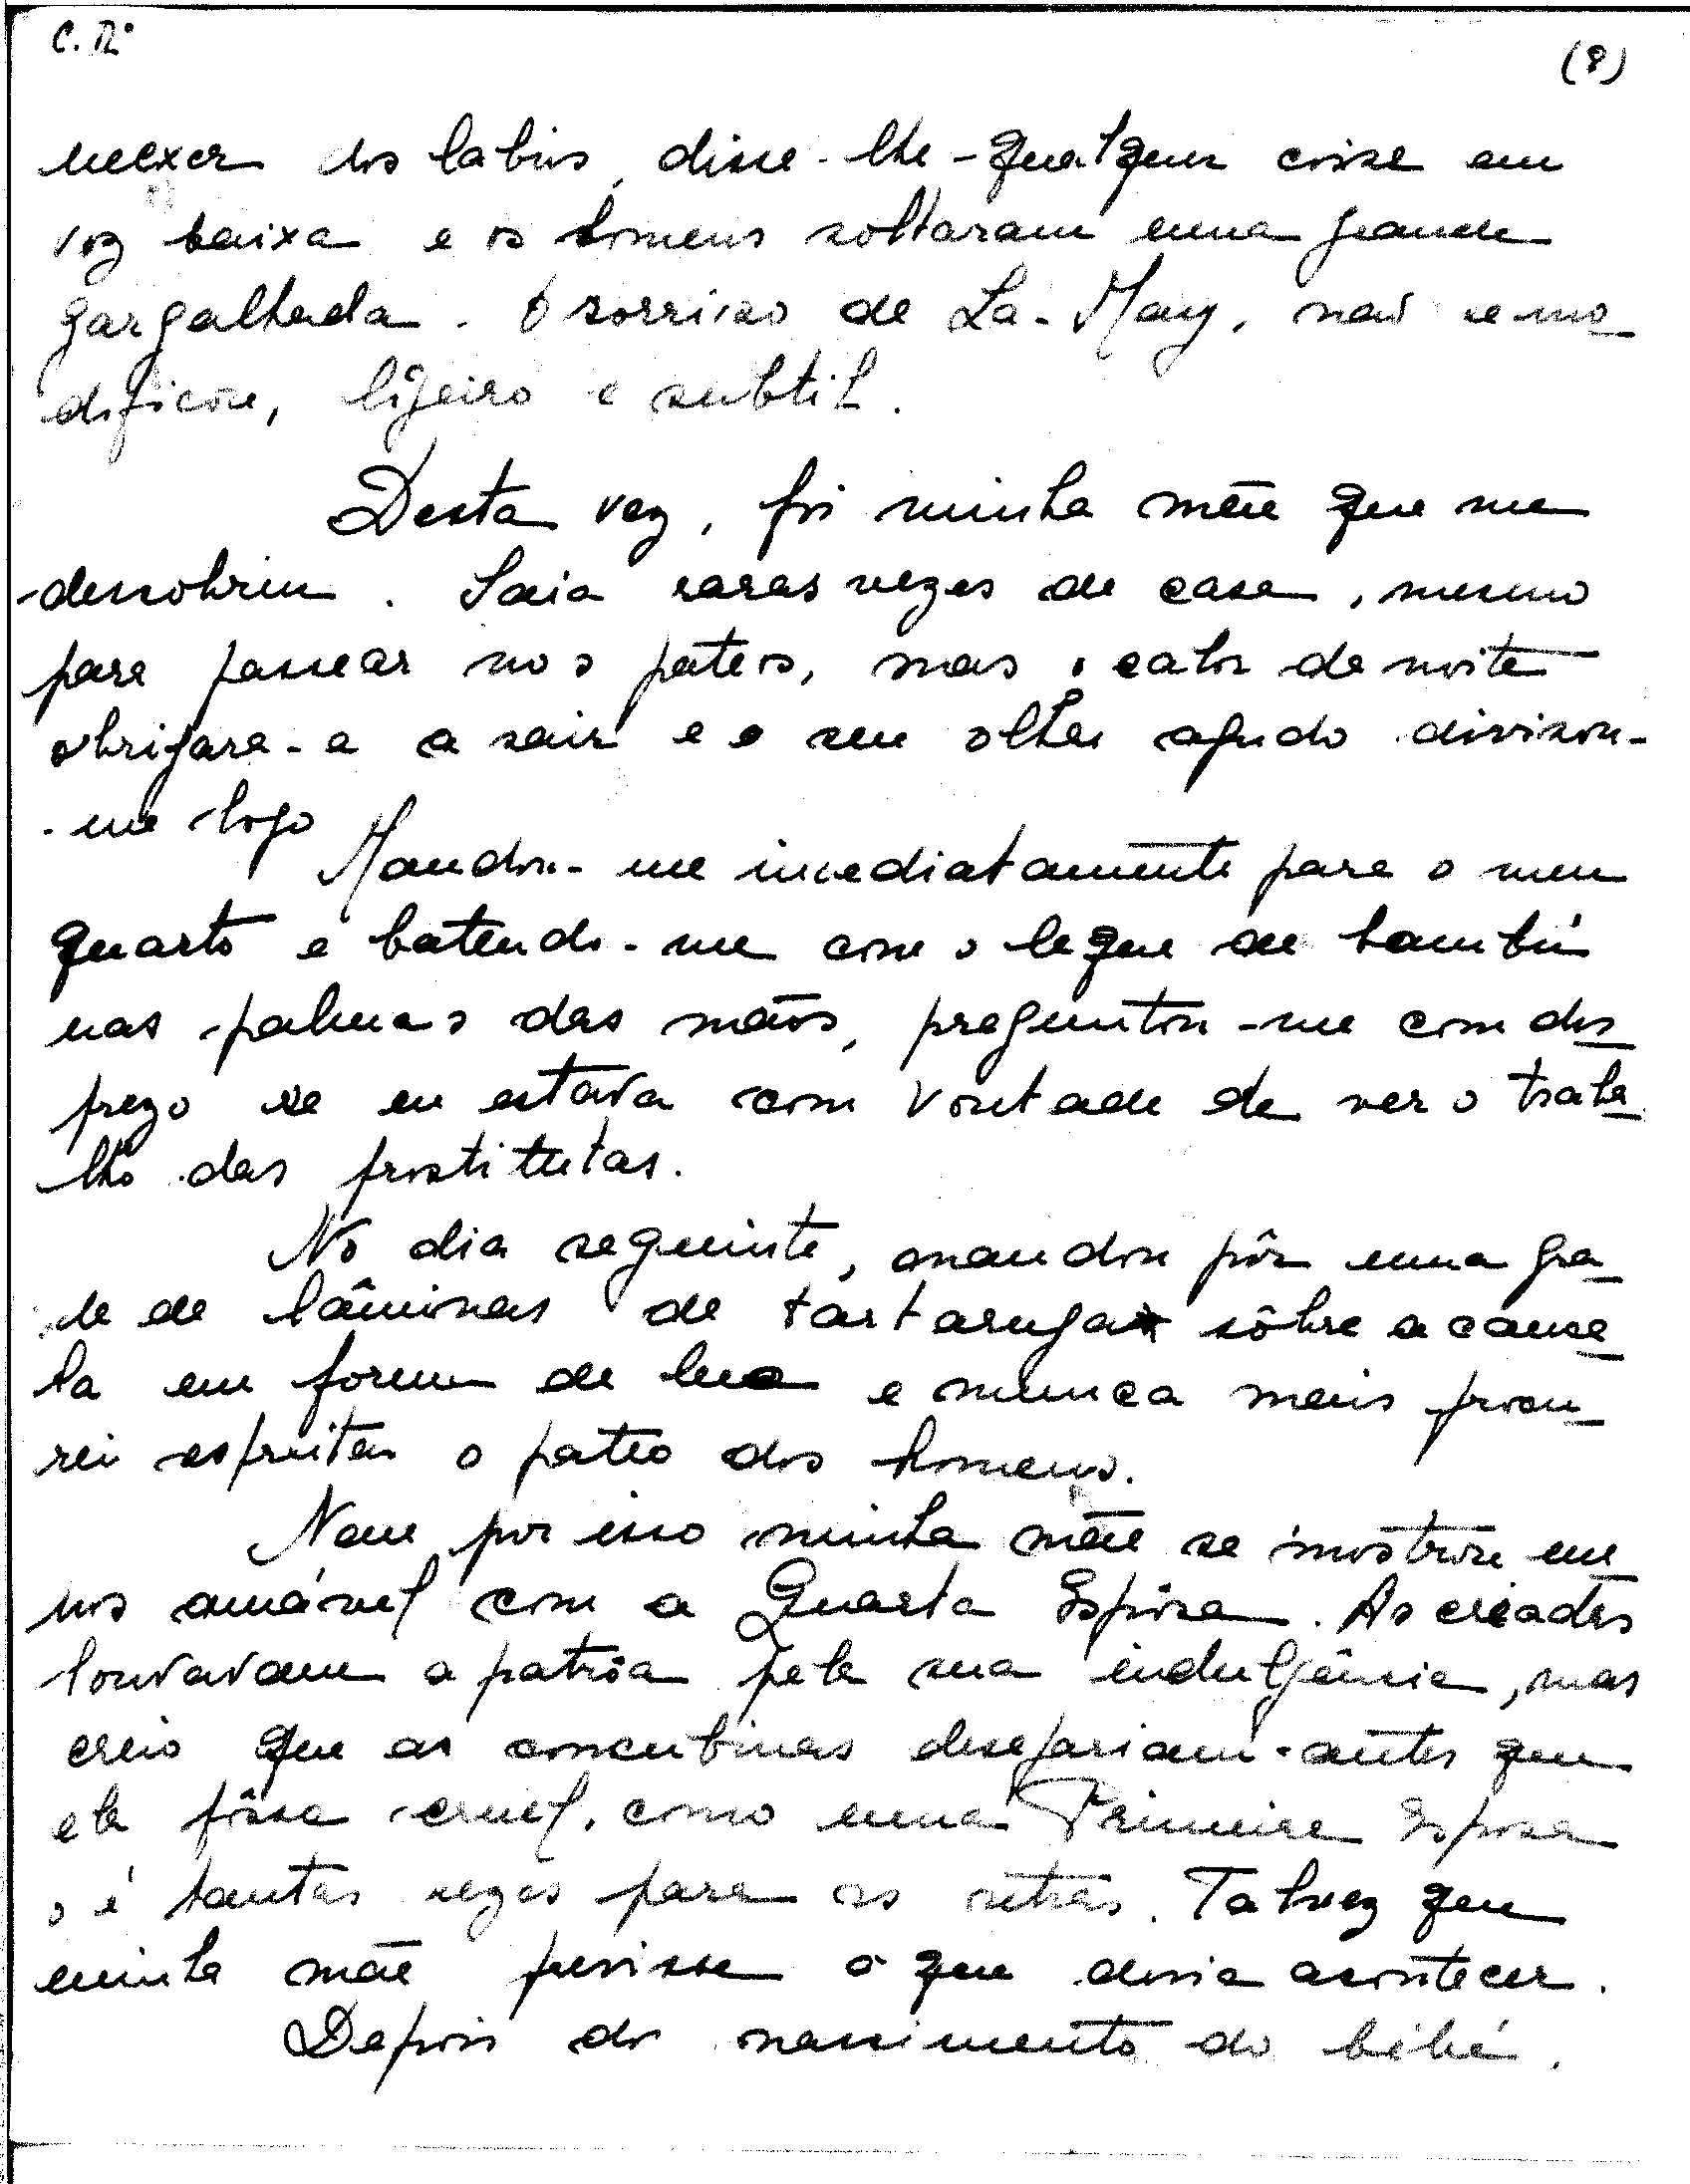 C. R.º
(8)
mecxer dos labios, disse-lhe-qualquer coisa em
voz baixa e os homens soltaram uma grande
gargalhada. O sorriso de La-May, não se mo_
dificou, ligeiro e subtil.
Desta vez, foi minha mãe que me
descobriu. Saia raras vezes de casa, mesmo
para passear nos pateos, mas o calor da noite
obrigara-a a sair e o seu olhar agudo divisou-
-me logo
Mandou-me imediatamente para o meu
quarto e batendo-me com o leque de bambú
nas palmas das mãos, preguntou-me com des_
prezo se eu estava com vontade de ver o traba_
lho das prostitutas.
No dia seguinte, mandou pôr uma gra_
de de lâminas de tartaruga sôbre a cance_
la em forma de lua e nunca mais procu_
rei espreitar o pateo dos homens.
Nem por isso minha mãe se mostrou me_
nos amável com a Quarta Espôsa. As creadas
louvavam a patrôa pela sua indulgência, mas
creio que as concubinas desejariam antes que
ela fôsse cruel, como uma Primeira Esposa
o é tantas vezes para as outras. Talvez que
minha mãe previsse o que devia acontecer.
Depois do nascimento do bébé,